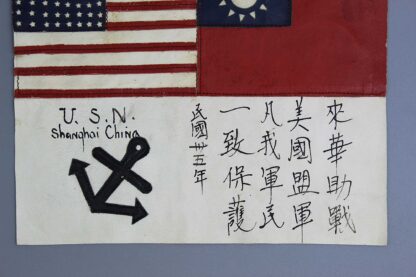 U.S.N.
Shanghai China
來華助戰
美國盟軍
凡我軍民
一致保護
民國卅五年